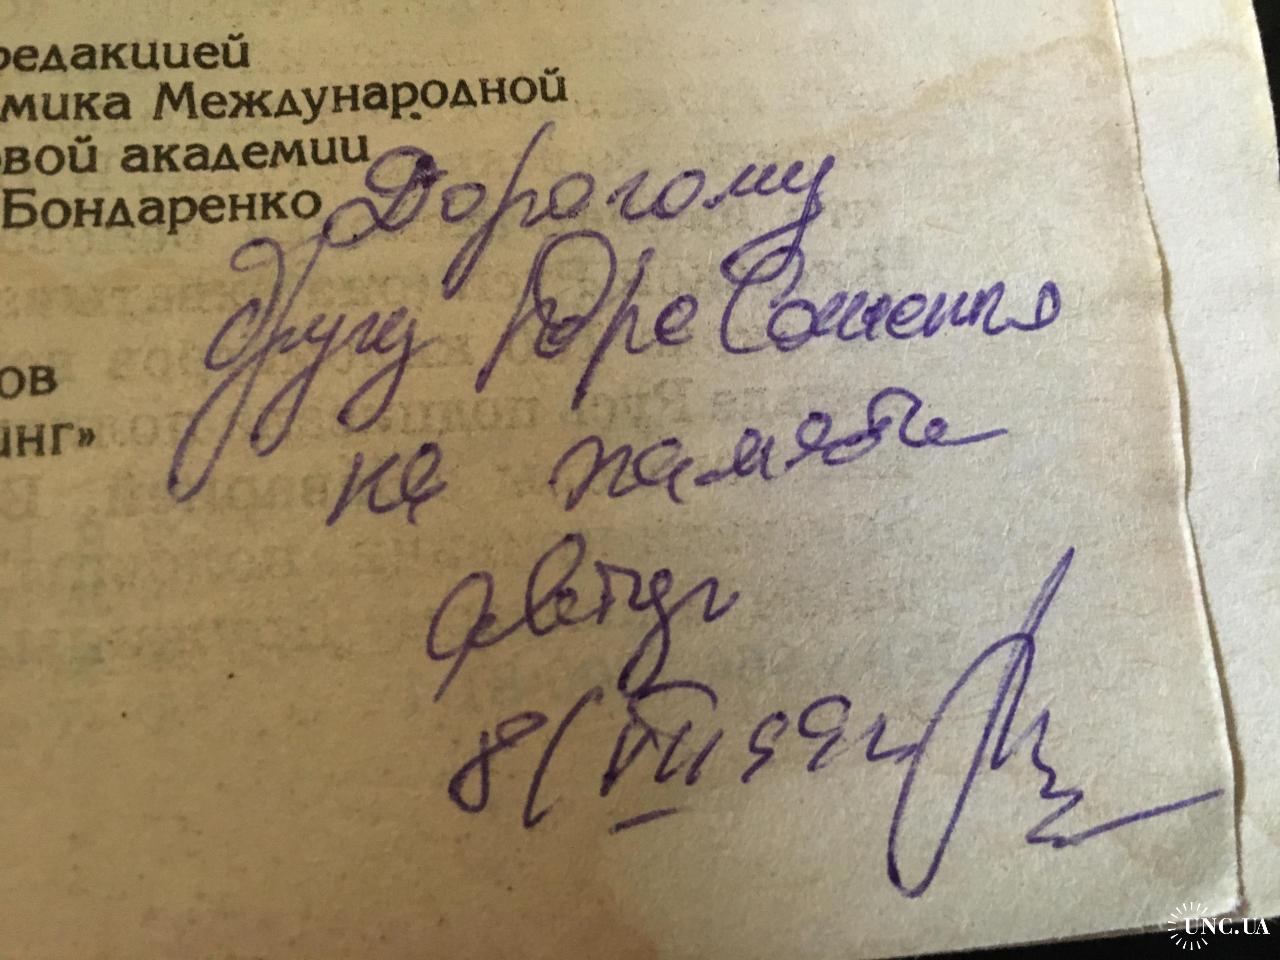 редакцией
мика Международной
вой академии
Бондаренко
ов
инг»
Дорогому
другу Юре
на память
автор
8/VII 99г
UNC.UA